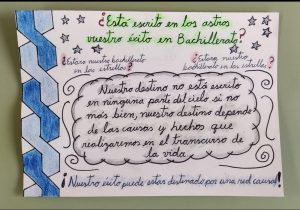 ¿Está escrito en los astros
vuestro éxito en Bachillerato?
¿Estara vuestro bachillerato
en las estrellas?
¿Estara nuestro
bachillerato en las estrellas?
Nuestro destino no está escrito
en ninguna parte del cielo si no
más bien, nuestro destino depende
de las causas y hechos que
realizaremos en el transcurso de
la vida.
¡Nuestro éxito puede estar destinado por una red causal!